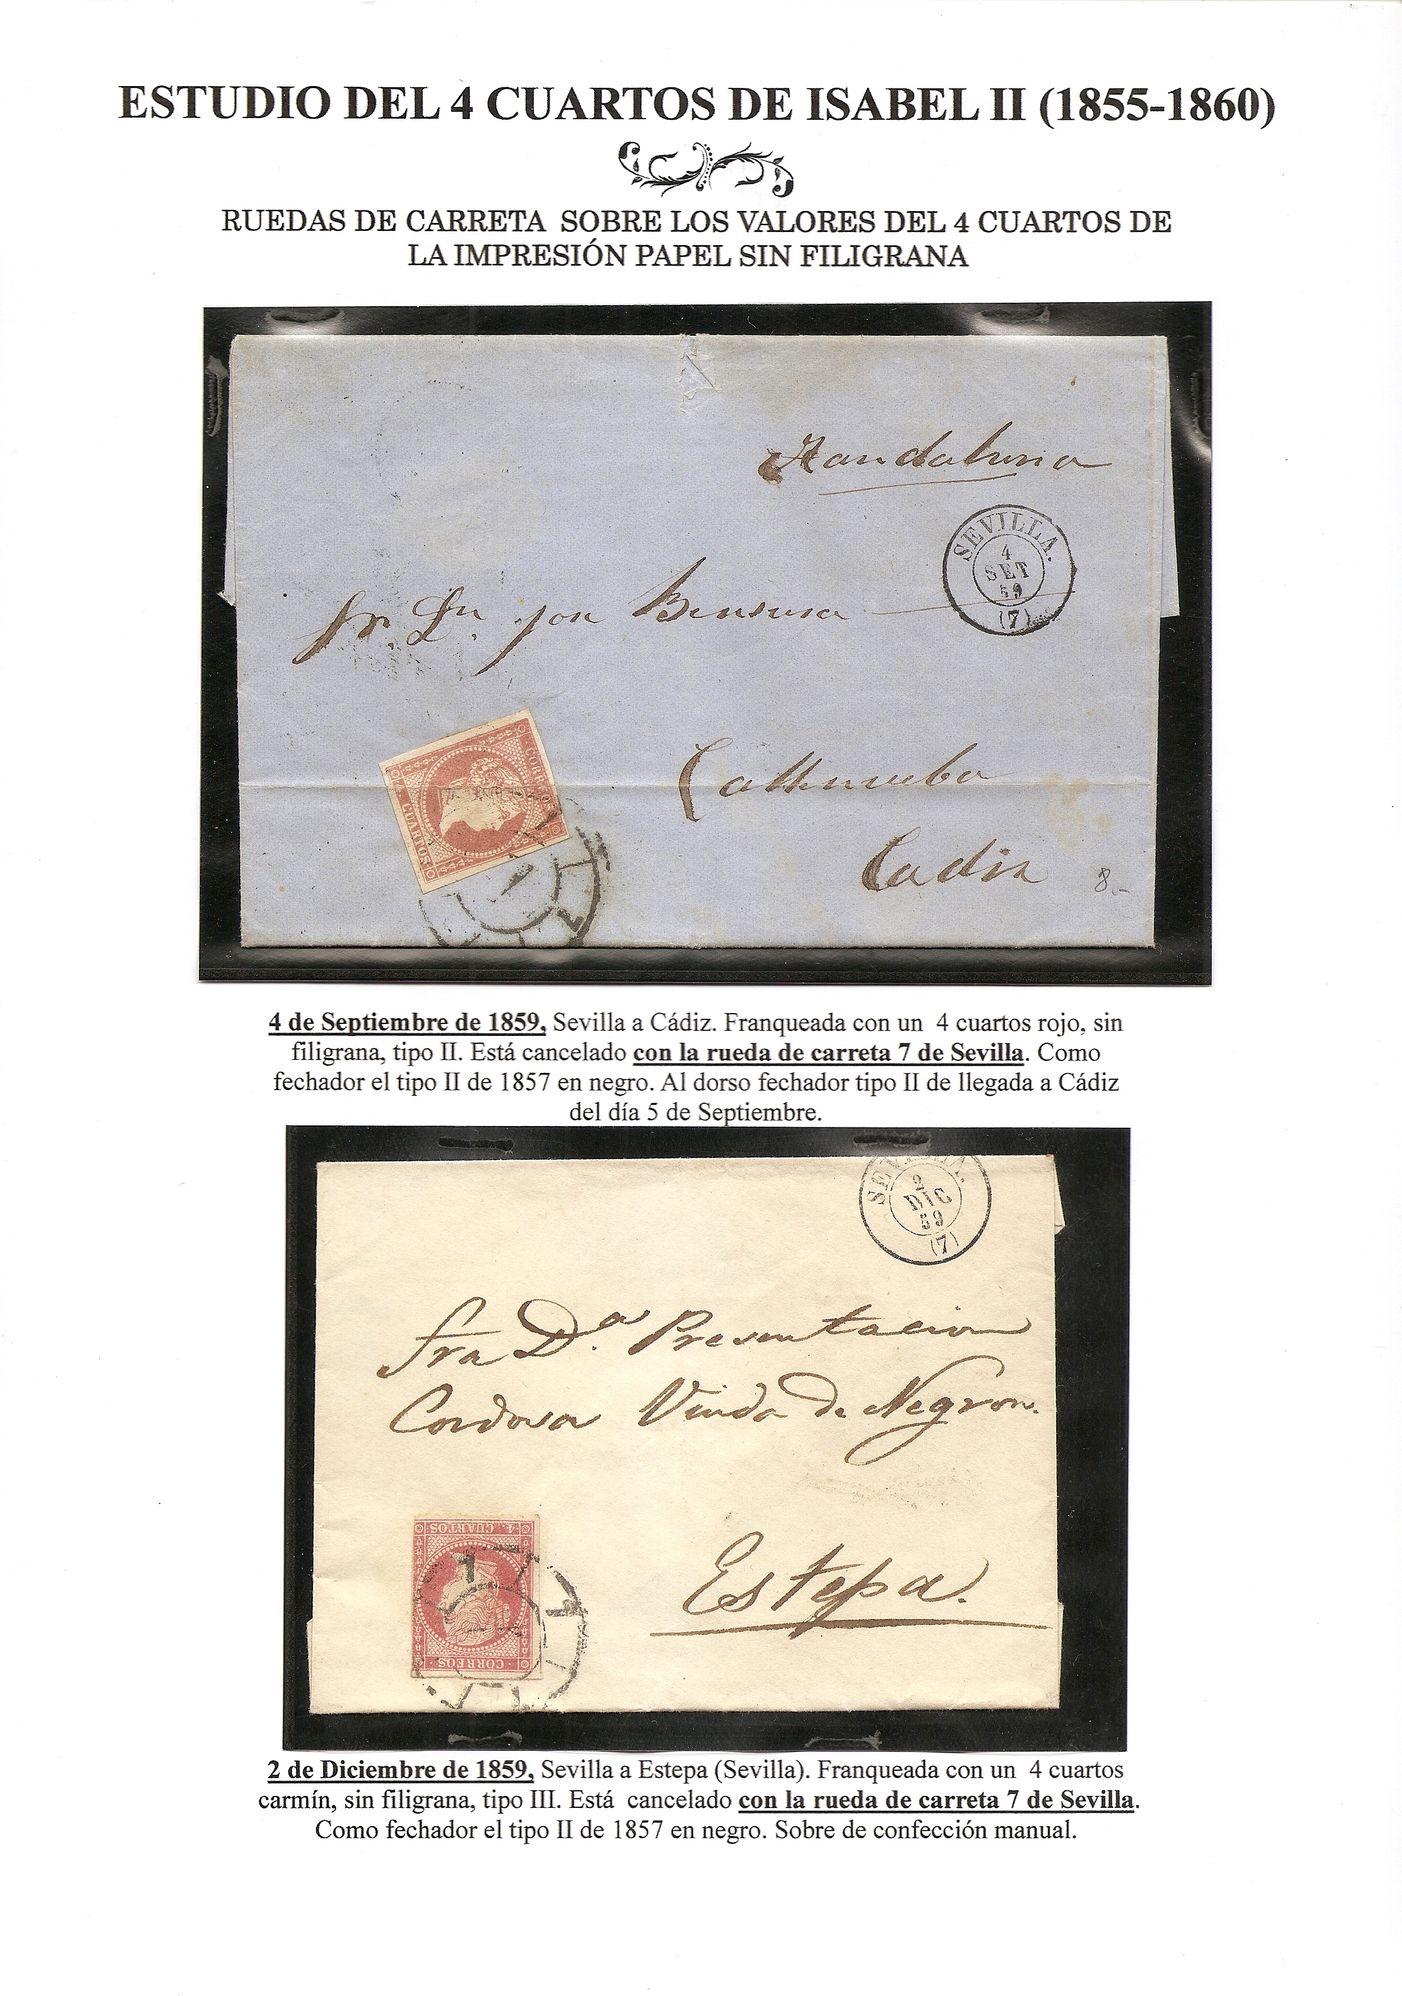 ESTUDIO DEL 4 CUARTOS DE ISABEL II (1855-1860)
RUEDAS DE CARRETA SOBRE LOS VALORES DEL 4 CUARTOS DE
LA IMPRESIÓN PAPEL SIN FILIGRANA
SEVILLA.
4
SET
59
(7)
Sr. Dn
Cadiz
8.-
CORREOS
4 CUARTOS
4 de Septiembre de 1859, Sevilla a Cádiz. Franqueada con un 4 cuartos rojo, sin
filigrana, tipo II. Está cancelado con la rueda de carreta 7 de Sevilla. Como
fechador el tipo II de 1857 en negro. Al dorso fechador tipo II de llegada a Cádiz
del día 5 de Septiembre.
SEVILLA.
2
DIC
59
(7)
Sra D.ª Presentacion
Cordova Viuda de Negron.
Estepa.
4 CUARTOS
CORREOS
2 de Diciembre de 1859, Sevilla a Estepa (Sevilla). Franqueada con un 4 cuartos
carmín, sin filigrana, tipo III. Está cancelado con la rueda de carreta 7 de Sevilla.
Como fechador el tipo II de 1857 en negro. Sobre de confección manual.